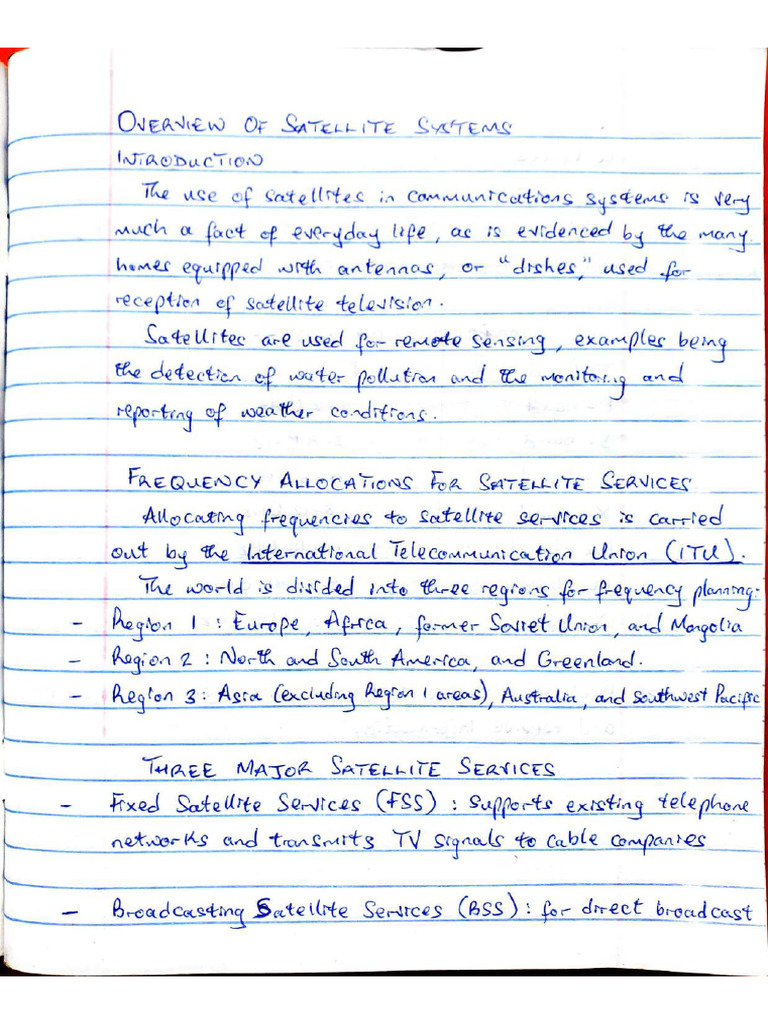 OVERVIEW OF SATELLITE SYSTEMS
INTRODUCTION
The use of satellites in communications systems is very
much a fact of everyday life, as is evidenced by the many
homes equipped with antennas, or "dishes," used for
reception of satellite television.
Satellites are used for remote sensing, examples being
the detection of water pollution and the monitoring and
reporting of weather conditions.
FREQUENCY ALLOCATIONS FOR SATELLITE SERVICES
Allocating frequencies to satellite services is carried
out by the International Telecommunication Union (ITU).
The world is divided into three regions for frequency planning:
- Region 1 : Europe, Africa, former Soviet Union, and Mongolia
- Region 2 : North and South America, and Greenland.
- Region 3 : Asia (excluding Region 1 areas), Australia, and Southwest Pacific
THREE MAJOR SATELLITE SERVICES
- Fixed Satellite Services (FSS) : Supports existing telephone
networks and transmits TV signals to cable companies
- Broadcasting Satellite Services (BSS) : for direct broadcast